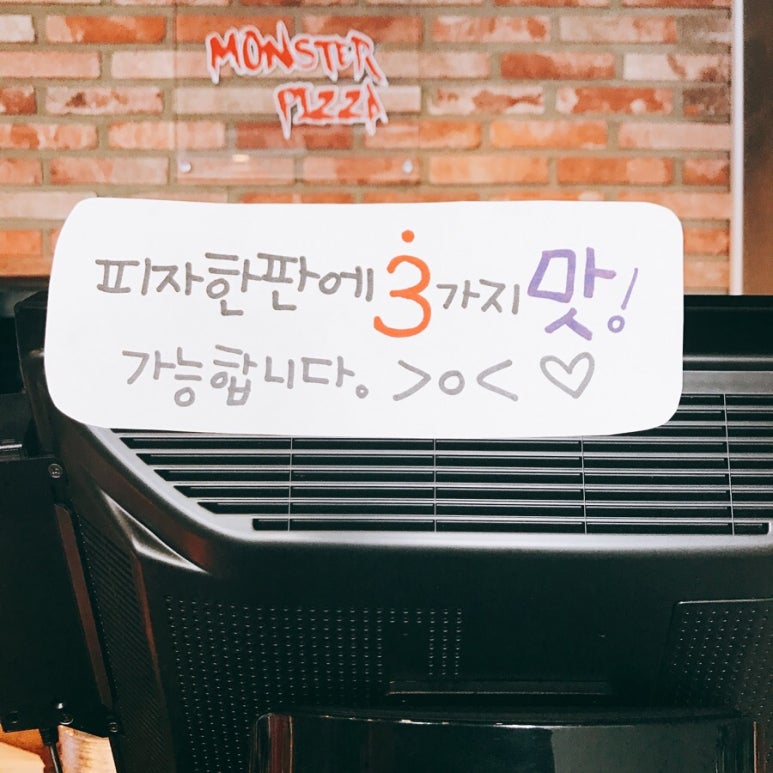 MONSTER
PIZZA
피자한판에 3가지 맛!
가능합니다. >o< ♡